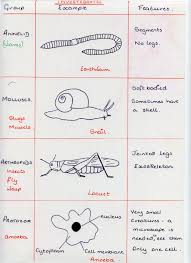 INVERTEBRATES
Group Example Features
ANNELID
(Worms)
Earthworm
Segments
No legs.
MOLLUSCS
Slugs
Mussels
Snail
Soft bodied
Sometimes have
a shell.
ARTHROPODS
Insects
Fly
Wasp
Locust
Jointed legs
Exoskeleton
PROTOZOA
Amoeba
nucleus
Cytoplasm
Cell membrane
Amoeba
Very small
creatures - a
microscope is
needed to see them
Only one cell.